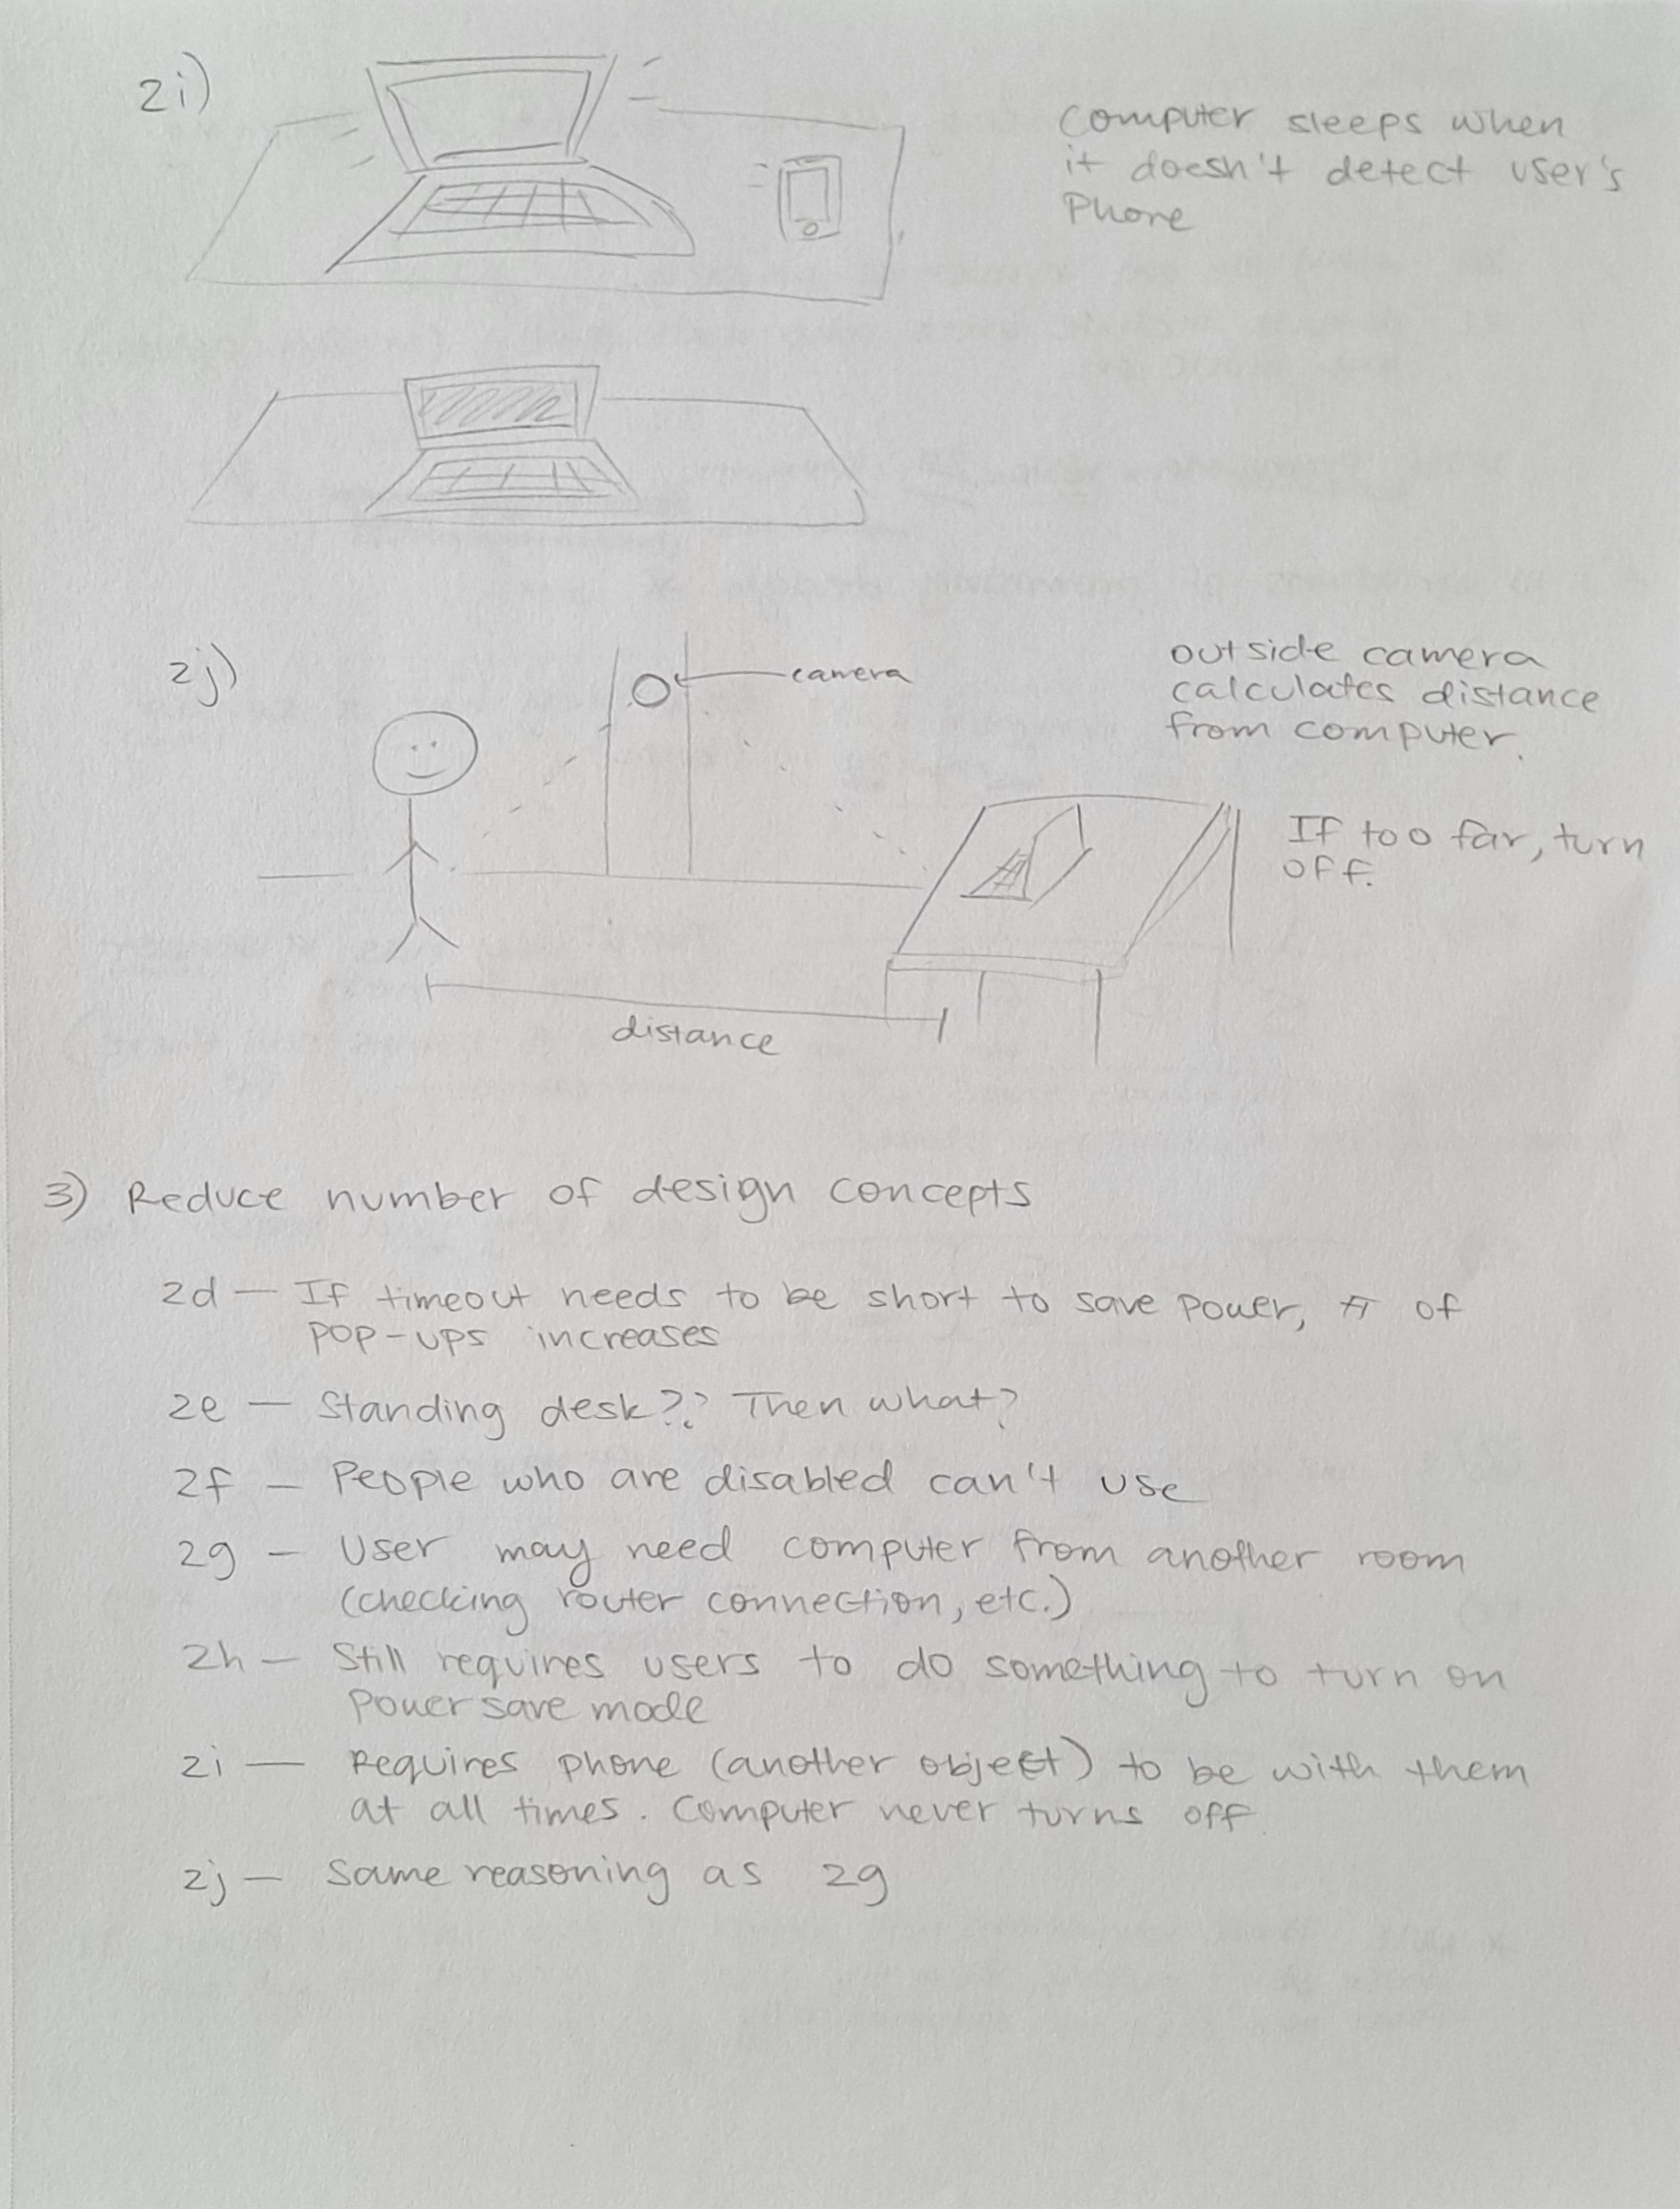 2i)
Computer sleeps when
it doesn't detect user's
Phone
2j)
camera
outside camera
calculates distance
from computer.
If too far, turn
off.
distance
3) Reduce number of design concepts
2d — If timeout needs to be short to save power, # of
pop-ups increases
2e — Standing desk?? Then what?
2f — People who are disabled can't use
2g — User may need computer from another room
(checking router connection, etc.)
2h — Still requires users to do something to turn on
power save mode
2i — Requires phone (another object) to be with them
at all times. Computer never turns off.
2j — Same reasoning as 2g